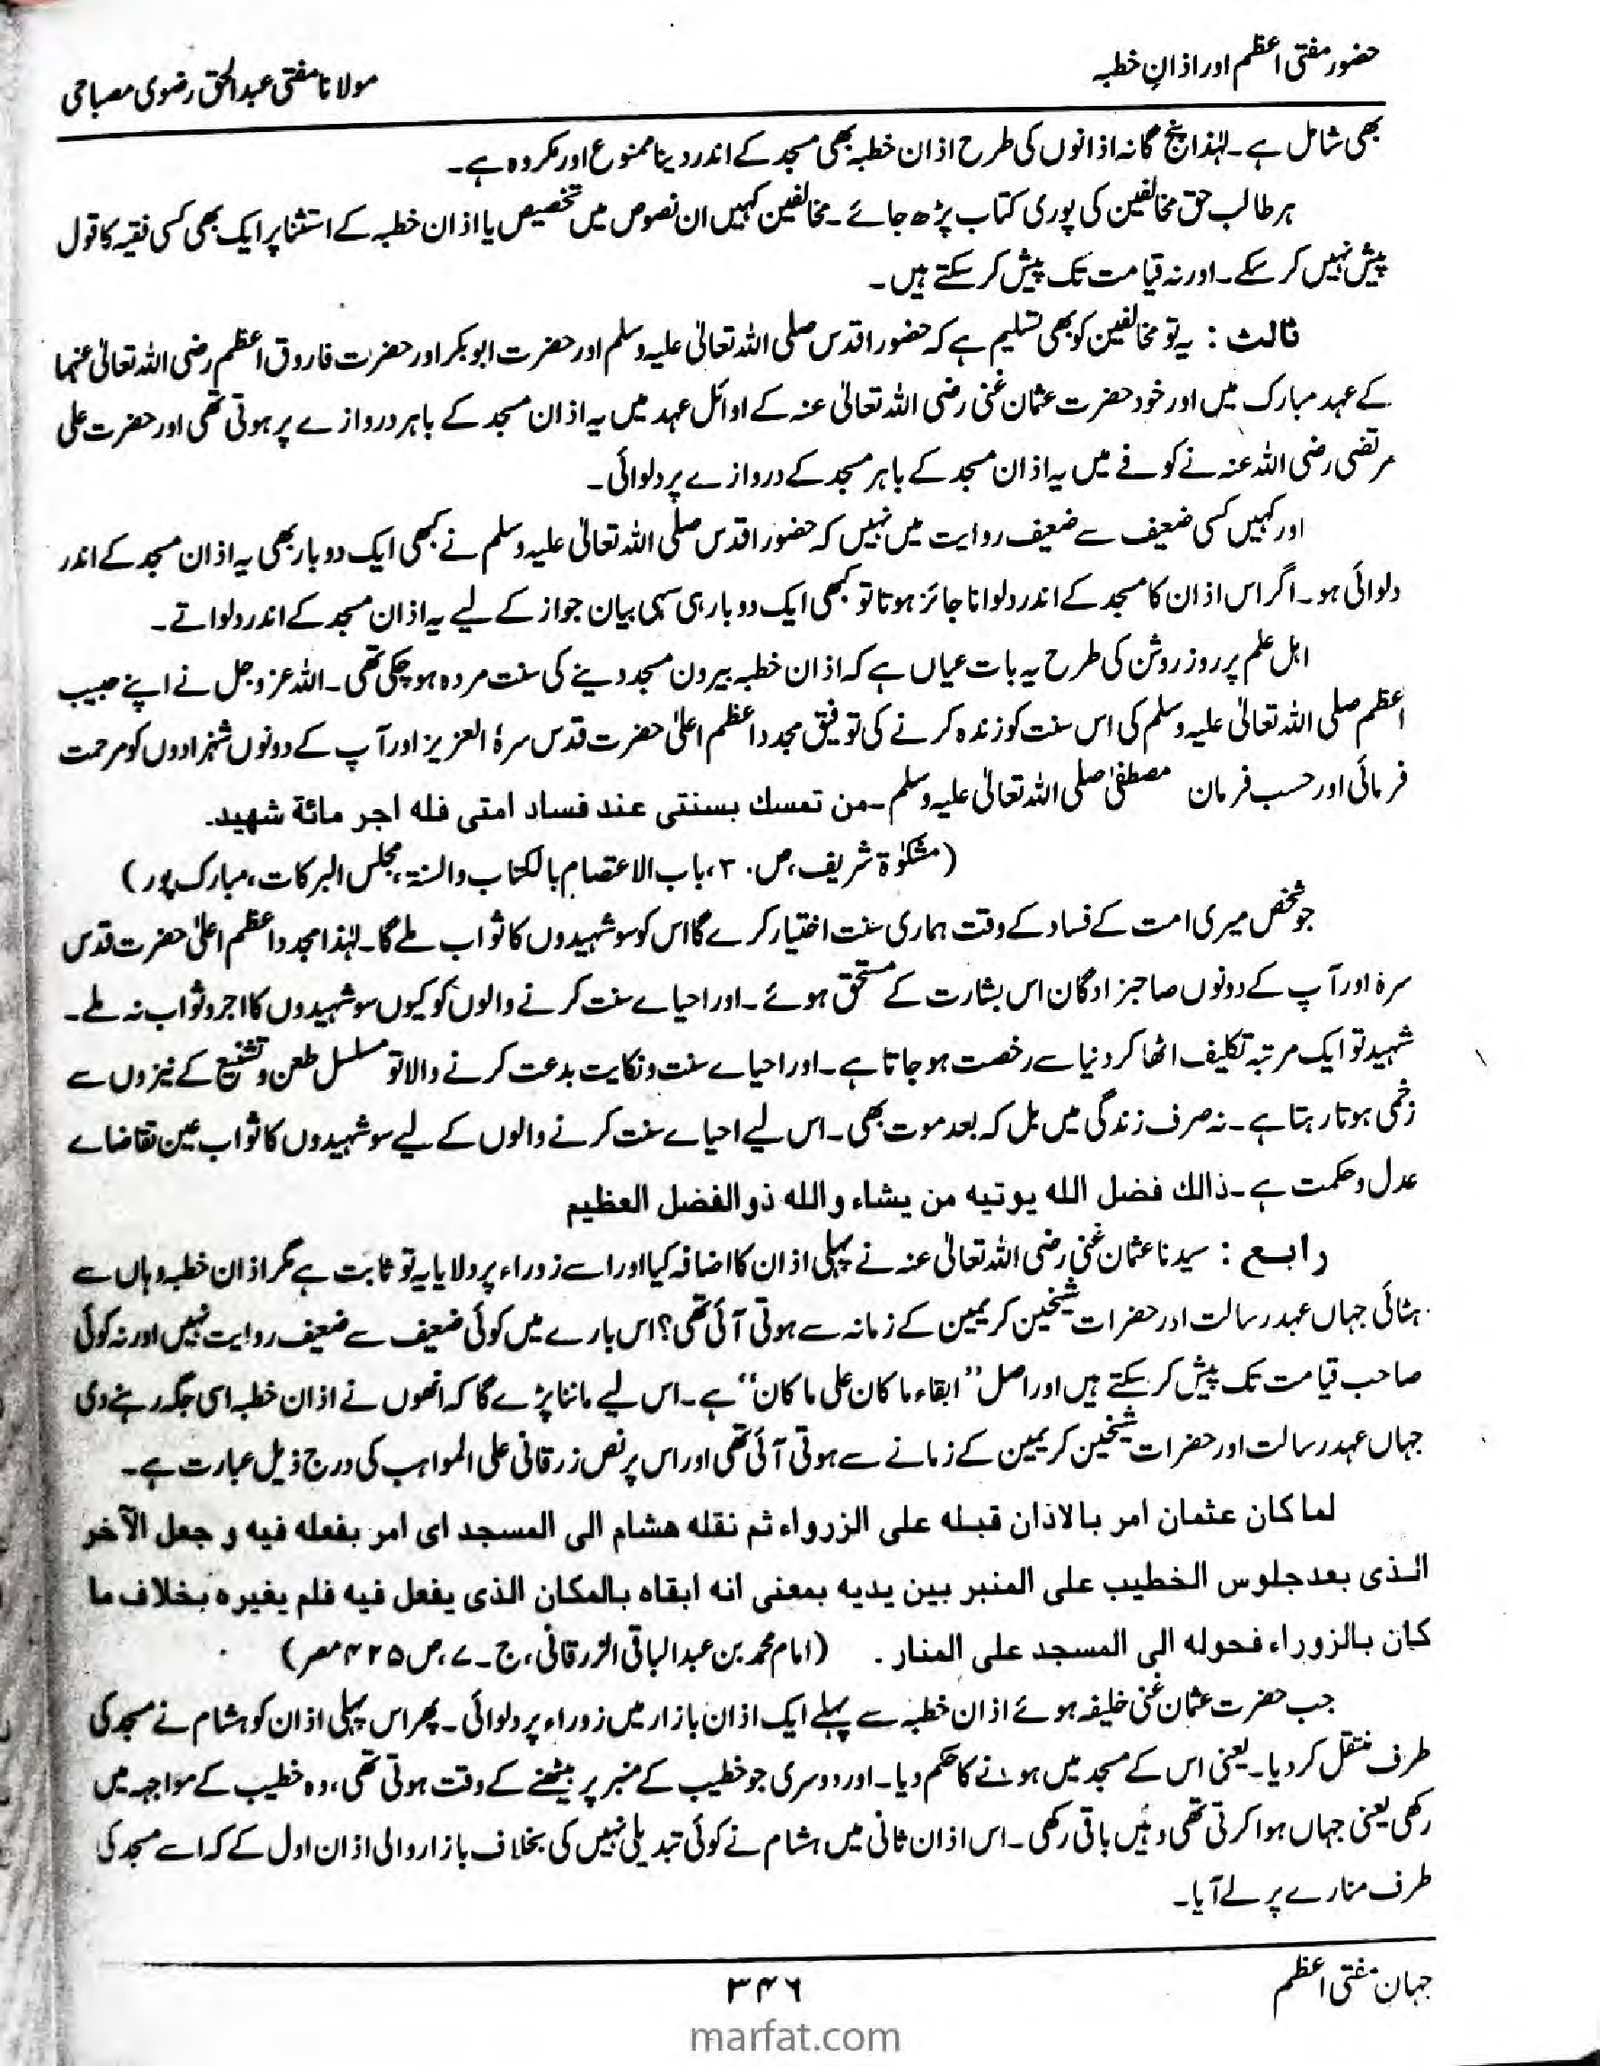 حضور مفتی اعظم اور اذانِ خطبہ
مولانا مفتی عبدالحق رضوی مصباحی
بھی شامل ہے۔ لہٰذا پنج گانہ اذانوں کی طرح اذان خطبہ بھی مسجد کے اندر دینا ممنوع اور مکروہ ہے۔
ہر طالب حق مخالفین کی پوری کتاب پڑھ جائے۔ مخالفین کہیں ان نصوص میں تخصیص یا اذان خطبہ کے استثنا پر ایک بھی کسی فقیہ کا قول
پیش نہیں کر سکے۔ اور نہ قیامت تک پیش کر سکتے ہیں۔
ثالث : یہ تو مخالفین کو بھی تسلیم ہے کہ حضور اقدس صلی اللہ تعالیٰ علیہ وسلم اور حضرت ابوبکر اور حضرت فاروق اعظم رضی اللہ تعالیٰ عنہما
کے عہد مبارک میں اور خود حضرت عثمان غنی رضی اللہ تعالیٰ عنہ کے اوائل عہد میں یہ اذان مسجد کے باہر دروازے پر ہوتی تھی اور حضرت علی
مرتضی رضی اللہ عنہ نے کوفے میں یہ اذان مسجد کے باہر مسجد کے دروازے پر دلوائی۔
اور کہیں کسی ضعیف سے ضعیف روایت میں نہیں کہ حضور اقدس صلی اللہ تعالیٰ علیہ وسلم نے کبھی ایک دو بار بھی یہ اذان مسجد کے اندر
دلوائی ہو۔ اگر اس اذان کا مسجد کے اندر دلوانا جائز ہوتا تو کبھی ایک دو بار ہی سہی بیان جواز کے لیے یہ اذان مسجد کے اندر دلواتے۔
اہل علم پر روز روشن کی طرح یہ بات عیاں ہے کہ اذان خطبہ بیرون مسجد دینے کی سنت مردہ ہو چکی تھی۔ اللہ عزوجل نے اپنے حبیب
اعظم صلی اللہ تعالیٰ علیہ وسلم کی اس سنت کو زندہ کرنے کی توفیق مجدد اعظم اعلیٰ حضرت قدس سرہٗ العزیز اور آپ کے دونوں شہزادوں کو مرحمت
فرمائی اور حسب فرمان مصطفیٰ صلی اللہ تعالیٰ علیہ وسلم۔ من تمسك بسنتی عند فساد امتی فله اجر مائة شهيد۔
(مشکوٰۃ شریف، ص ۳۰، باب الاعتصام بالکتاب والسنۃ، مجلس البرکات، مبارک پور)
جو شخص میری امت کے فساد کے وقت ہماری سنت اختیار کرے گا اس کو سو شہیدوں کا ثواب ملے گا۔ لہٰذا مجدد اعظم اعلیٰ حضرت قدس
سرہٗ اور آپ کے دونوں صاحبزادگان اس بشارت کے مستحق ہوئے۔ اور احیاے سنت کرنے والوں کو کیوں سو شہیدوں کا اجر و ثواب نہ ملے۔
شہید تو ایک مرتبہ تکلیف اٹھا کر دنیا سے رخصت ہو جاتا ہے۔ اور احیاے سنت و نکایت بدعت کرنے والا تو مسلسل طعن و تشنیع کے نیزوں سے
زخمی ہوتا رہتا ہے۔ نہ صرف زندگی میں بل کہ بعد موت بھی۔ اس لیے احیاے سنت کرنے والوں کے لیے سو شہیدوں کا ثواب عین تقاضاے
عدل و حکمت ہے۔ ذالك فضل الله يوتيه من يشاء والله ذوالفضل العظيم
رابع : سیدنا عثمان غنی رضی اللہ تعالیٰ عنہ نے پہلی اذان کا اضافہ کیا اور اسے زوراء پر دلایا یہ تو ثابت ہے مگر اذان خطبہ وہاں سے
ہٹائی جہاں عہد رسالت اور حضرات شیخین کریمین کے زمانہ سے ہوتی آئی تھی؟ اس بارے میں کوئی ضعیف سے ضعیف روایت نہیں اور نہ کوئی
صاحب قیامت تک پیش کر سکتے ہیں اور اصل ”ابقاء ما کان علی ما کان“ ہے۔ اس لیے ماننا پڑے گا کہ انھوں نے اذان خطبہ اسی جگہ رہنے دی
جہاں عہد رسالت اور حضرات شیخین کریمین کے زمانے سے ہوتی آئی تھی اور اس پر نص زرقانی علی المواہب کی درج ذیل عبارت ہے۔
لما كان عثمان امر بالاذان قبله على الزرواء ثم نقله هشام الى المسجد اى امر بفعله فيه و جعل الآخر
الذى بعد جلوس الخطيب على المنبر بين يديه بمعنى انه ابقاه بالمكان الذى يفعل فيه فلم يغيره بخلاف ما
كان بالزوراء فحوله الى المسجد على المنار ۔ (امام محمد بن عبدالباقی الزرقانی، ج۔ ۷، ص ۴۲۵ مصر)
جب حضرت عثمان غنی خلیفہ ہوئے اذان خطبہ سے پہلے ایک اذان بازار میں زوراء پر دلوائی۔ پھر اس پہلی اذان کو ہشام نے مسجد کی
طرف منتقل کر دیا۔ یعنی اس کے مسجد میں ہونے کا حکم دیا۔ اور دوسری جو خطیب کے منبر پر بیٹھنے کے وقت ہوتی تھی، وہ خطیب کے مواجہہ میں
رکھی یعنی جہاں ہوا کرتی تھی وہیں باقی رکھی۔ اس اذان ثانی میں ہشام نے کوئی تبدیلی نہیں کی بخلاف بازار والی اذان اول کے کہ اسے مسجد کی
طرف منارے پر لے آیا۔
جہان مفتی اعظم
۳۴۶
marfat.com